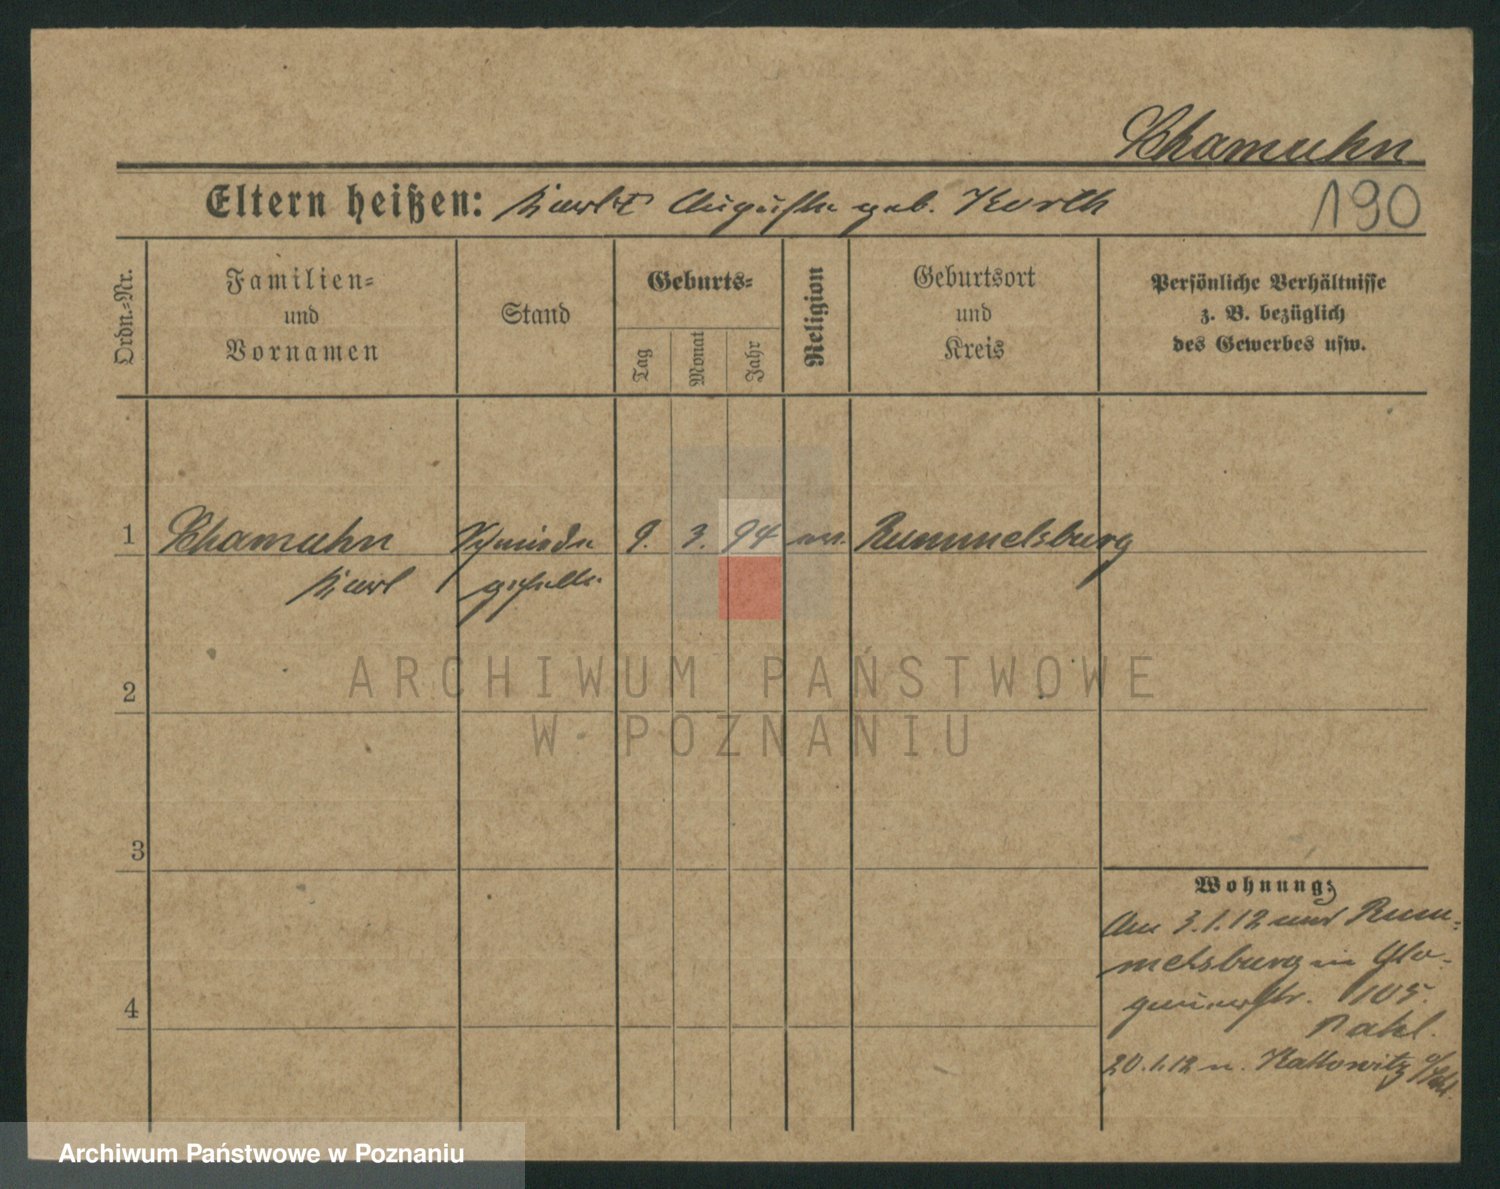 Schamuhn
Eltern heißen: Karl u. Auguste geb. Korth
190
Ordn.=Nr.
Familien=
und
Vornamen
Stand
Geburts=
Tag
Monat
Jahr
Religion
Geburtsort
und
Kreis
Persönliche Verhältnisse
z. B. bezüglich
des Gewerbes usw.
1 Schamuhn Schmiede 9. 3. 94 ev. Rummelsburg
Karl geselle
2
ARCHIWUM PAŃSTWOWE
W POZNANIU
3
Wohnung:
Am 3.1.12 aus Rum-
melsburg in Glo-
gauerstr. 105.
20.1.12 n. Kattowitz
4
Archiwum Państwowe w Poznaniu